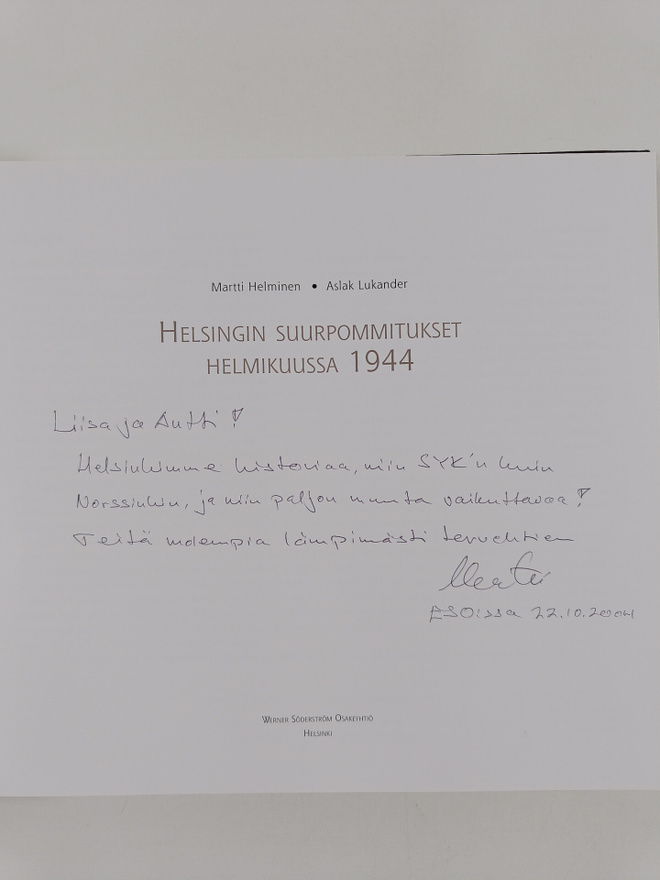 Martti Helminen • Aslak Lukander
HELSINGIN SUURPOMMITUKSET
HELMIKUUSSA 1944
Liisa ja Antti!
Helsinkimme historiaa, niin SYK'n kuin
Norssinkin, ja niin paljon muuta vaikuttavaa!
Teitä molempia lämpimästi tervehtien
Martti
22.10.2004
WERNER SÖDERSTRÖM OSAKEYHTIÖ
HELSINKI